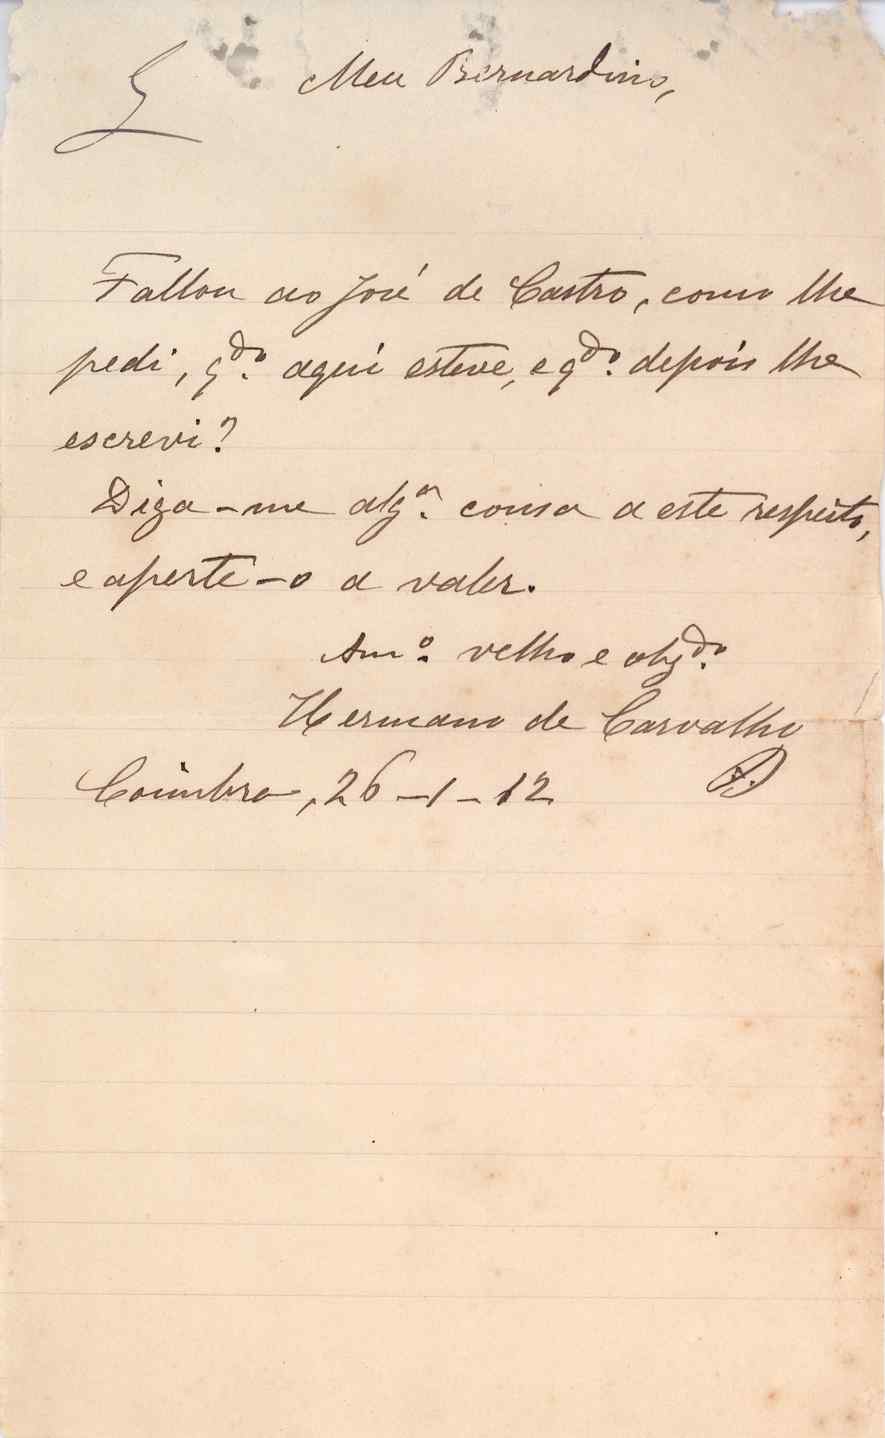 Meu Bernardino,
Fallou ao José de Castro, como lhe
pedi, q.do aqui esteve, e q.do depois lhe
escrevi?
Diga-me alg.a cousa a este respeito,
e aperte-o a valer.
Am.o velho e obg.do
Hermano de Carvalho
Coimbra, 26-1-12